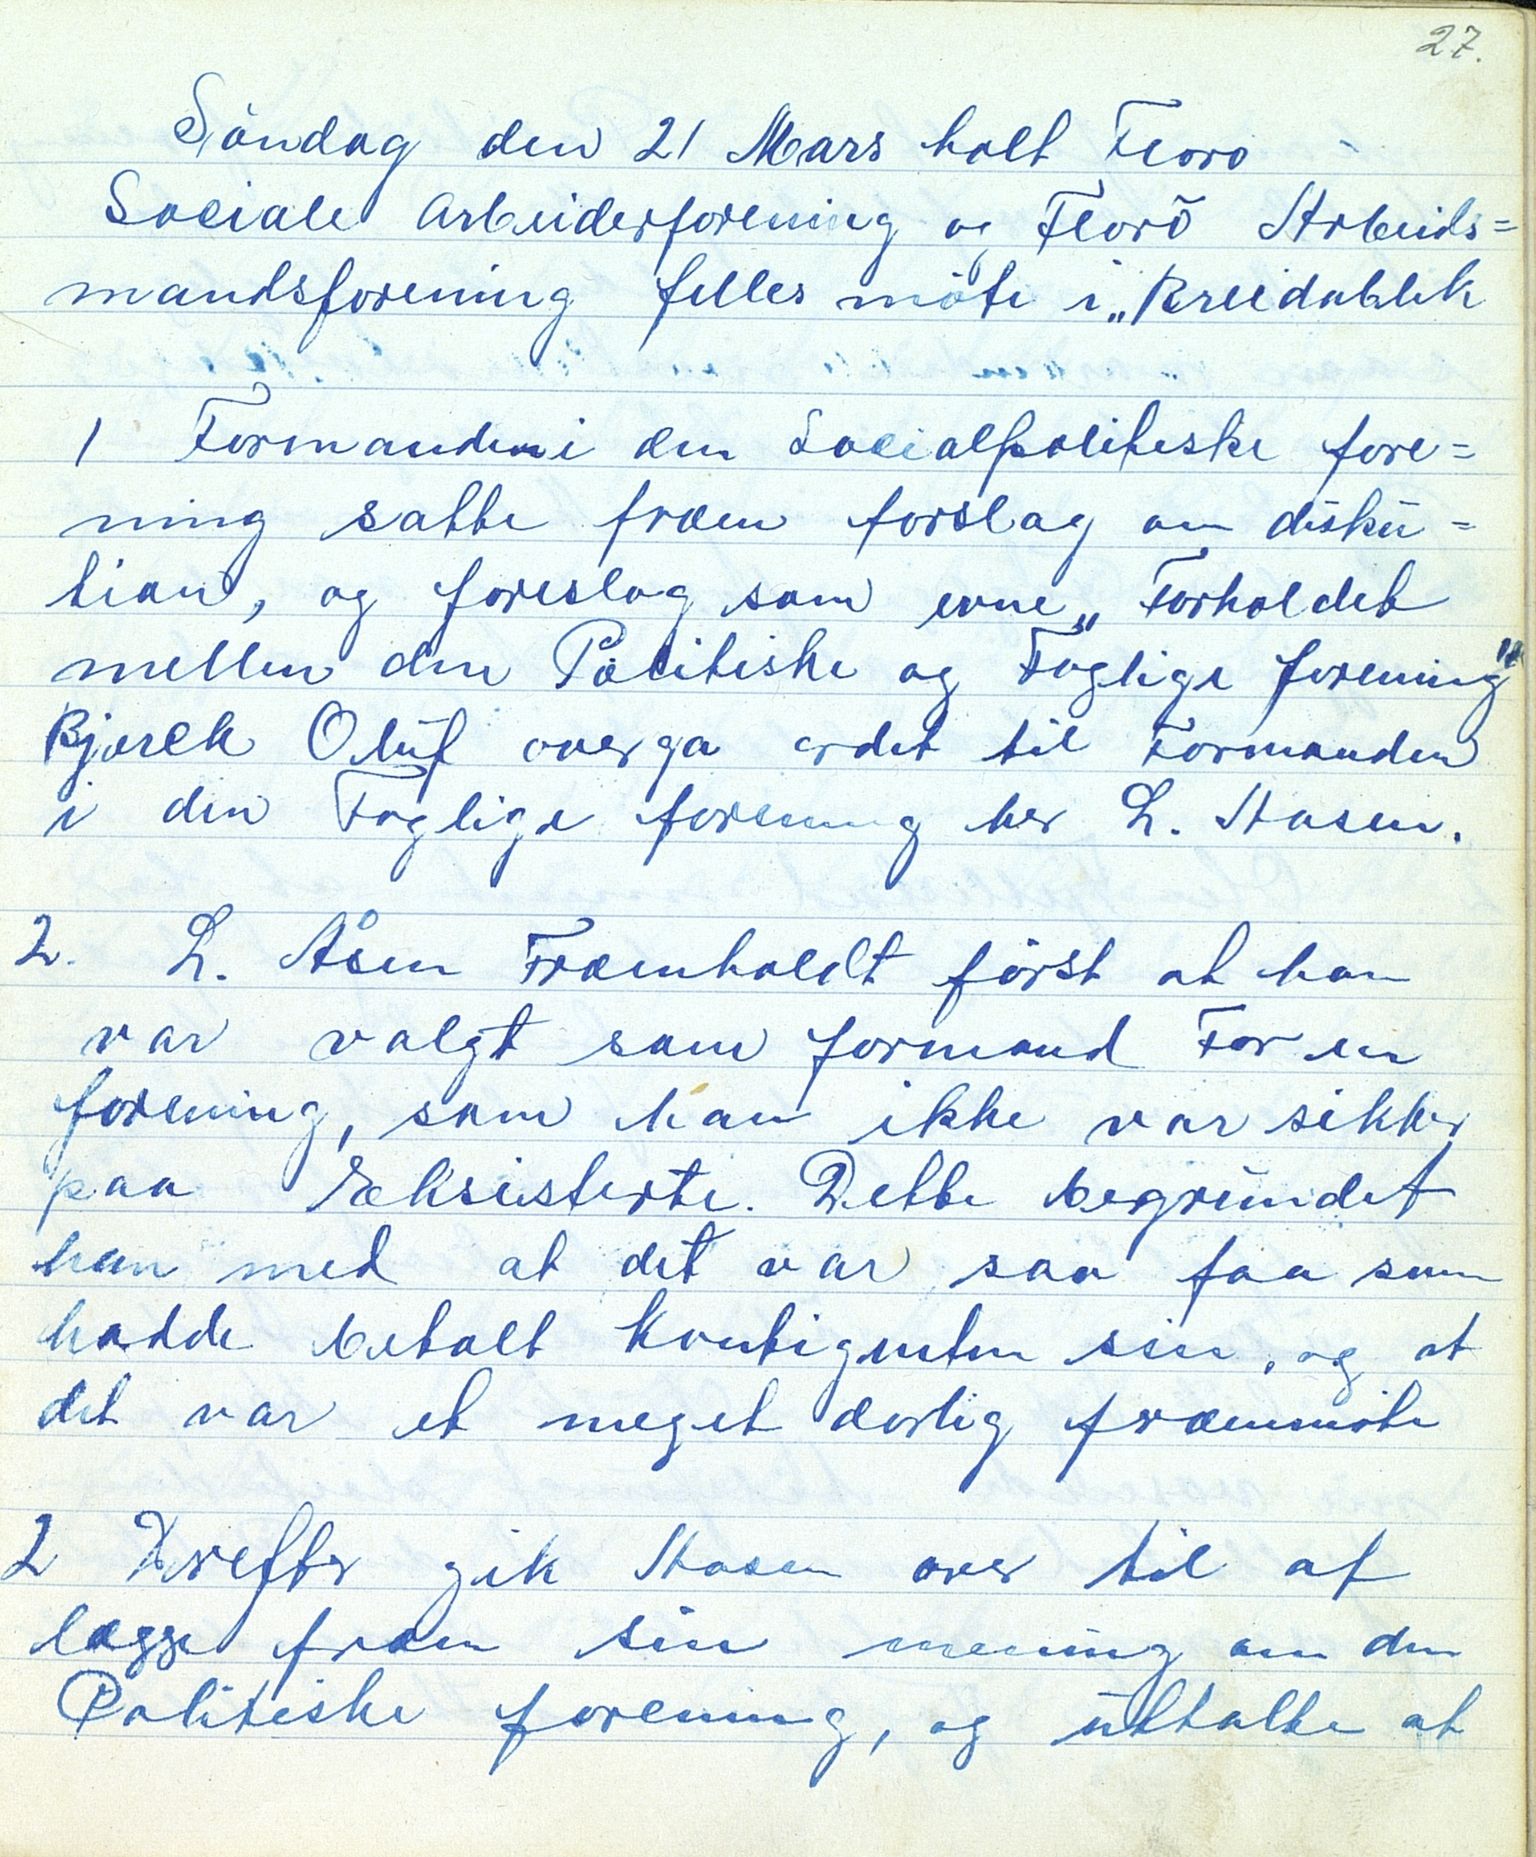 27.
Söndag den 21 Mars holt Floro
Sociale arbeiderforening og Florö Arbeids=
mandsforening felles möte i „Breidablik
1 Formanden i den Socialpolitiske fore=
ning satte fræm forslag om disku=
tion, og foreslog som emne „Forholdet
mellem den Politiske og Faglige forening"
Bjørck Oluf overga ordet til Formanden
i den Faglige forening her L. Aasen.
2. L. Åsen Fræmholdt först at han
var valgt som formand For en
forening, som han ikke var sikker
paa Eksisterte. Dette begrundet
han med at det var saa faa som
hadde betalt Kontigenten sin, og at
det var et meget dårlig fræmmöte
2 Derefter gik Aasen over til at
lægge fræm sin mening om den
Politiske forening, og uttalte at